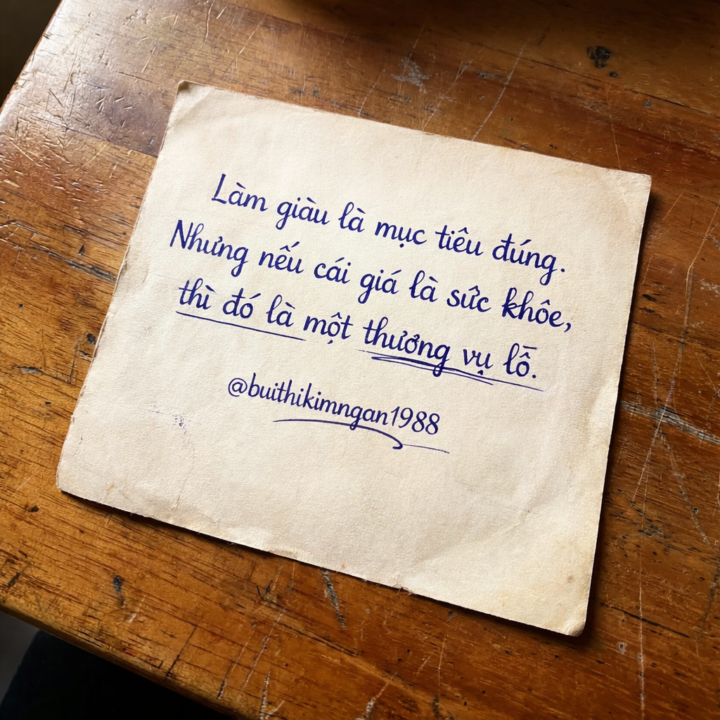 Làm giàu là mục tiêu đúng.
Nhưng nếu cái giá là sức khỏe,
thì đó là một thương vụ lỗ.
@buithikimngan1988